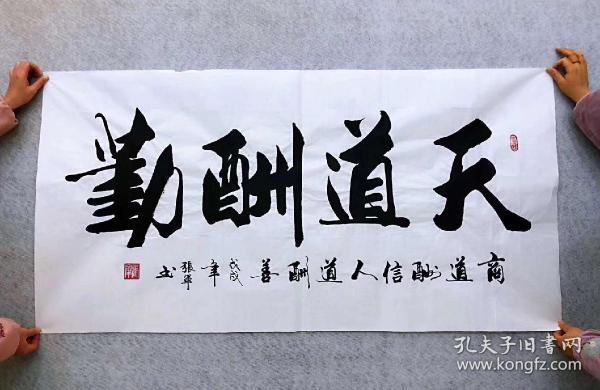 天道酬勤
商道酬信人道酬善 戊戌年 張華书
孔夫子旧书网
www.kongfz.com